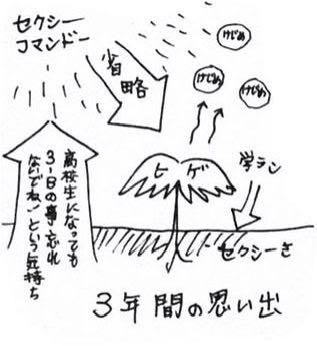 セクシー
コマンドー
省略
けじめ
けじめ
けじめ
ヒゲ
学ラン
セクシーさ
高校生になっても
3-8の事忘れ
ないでね!という気持ち
3年間の思い出